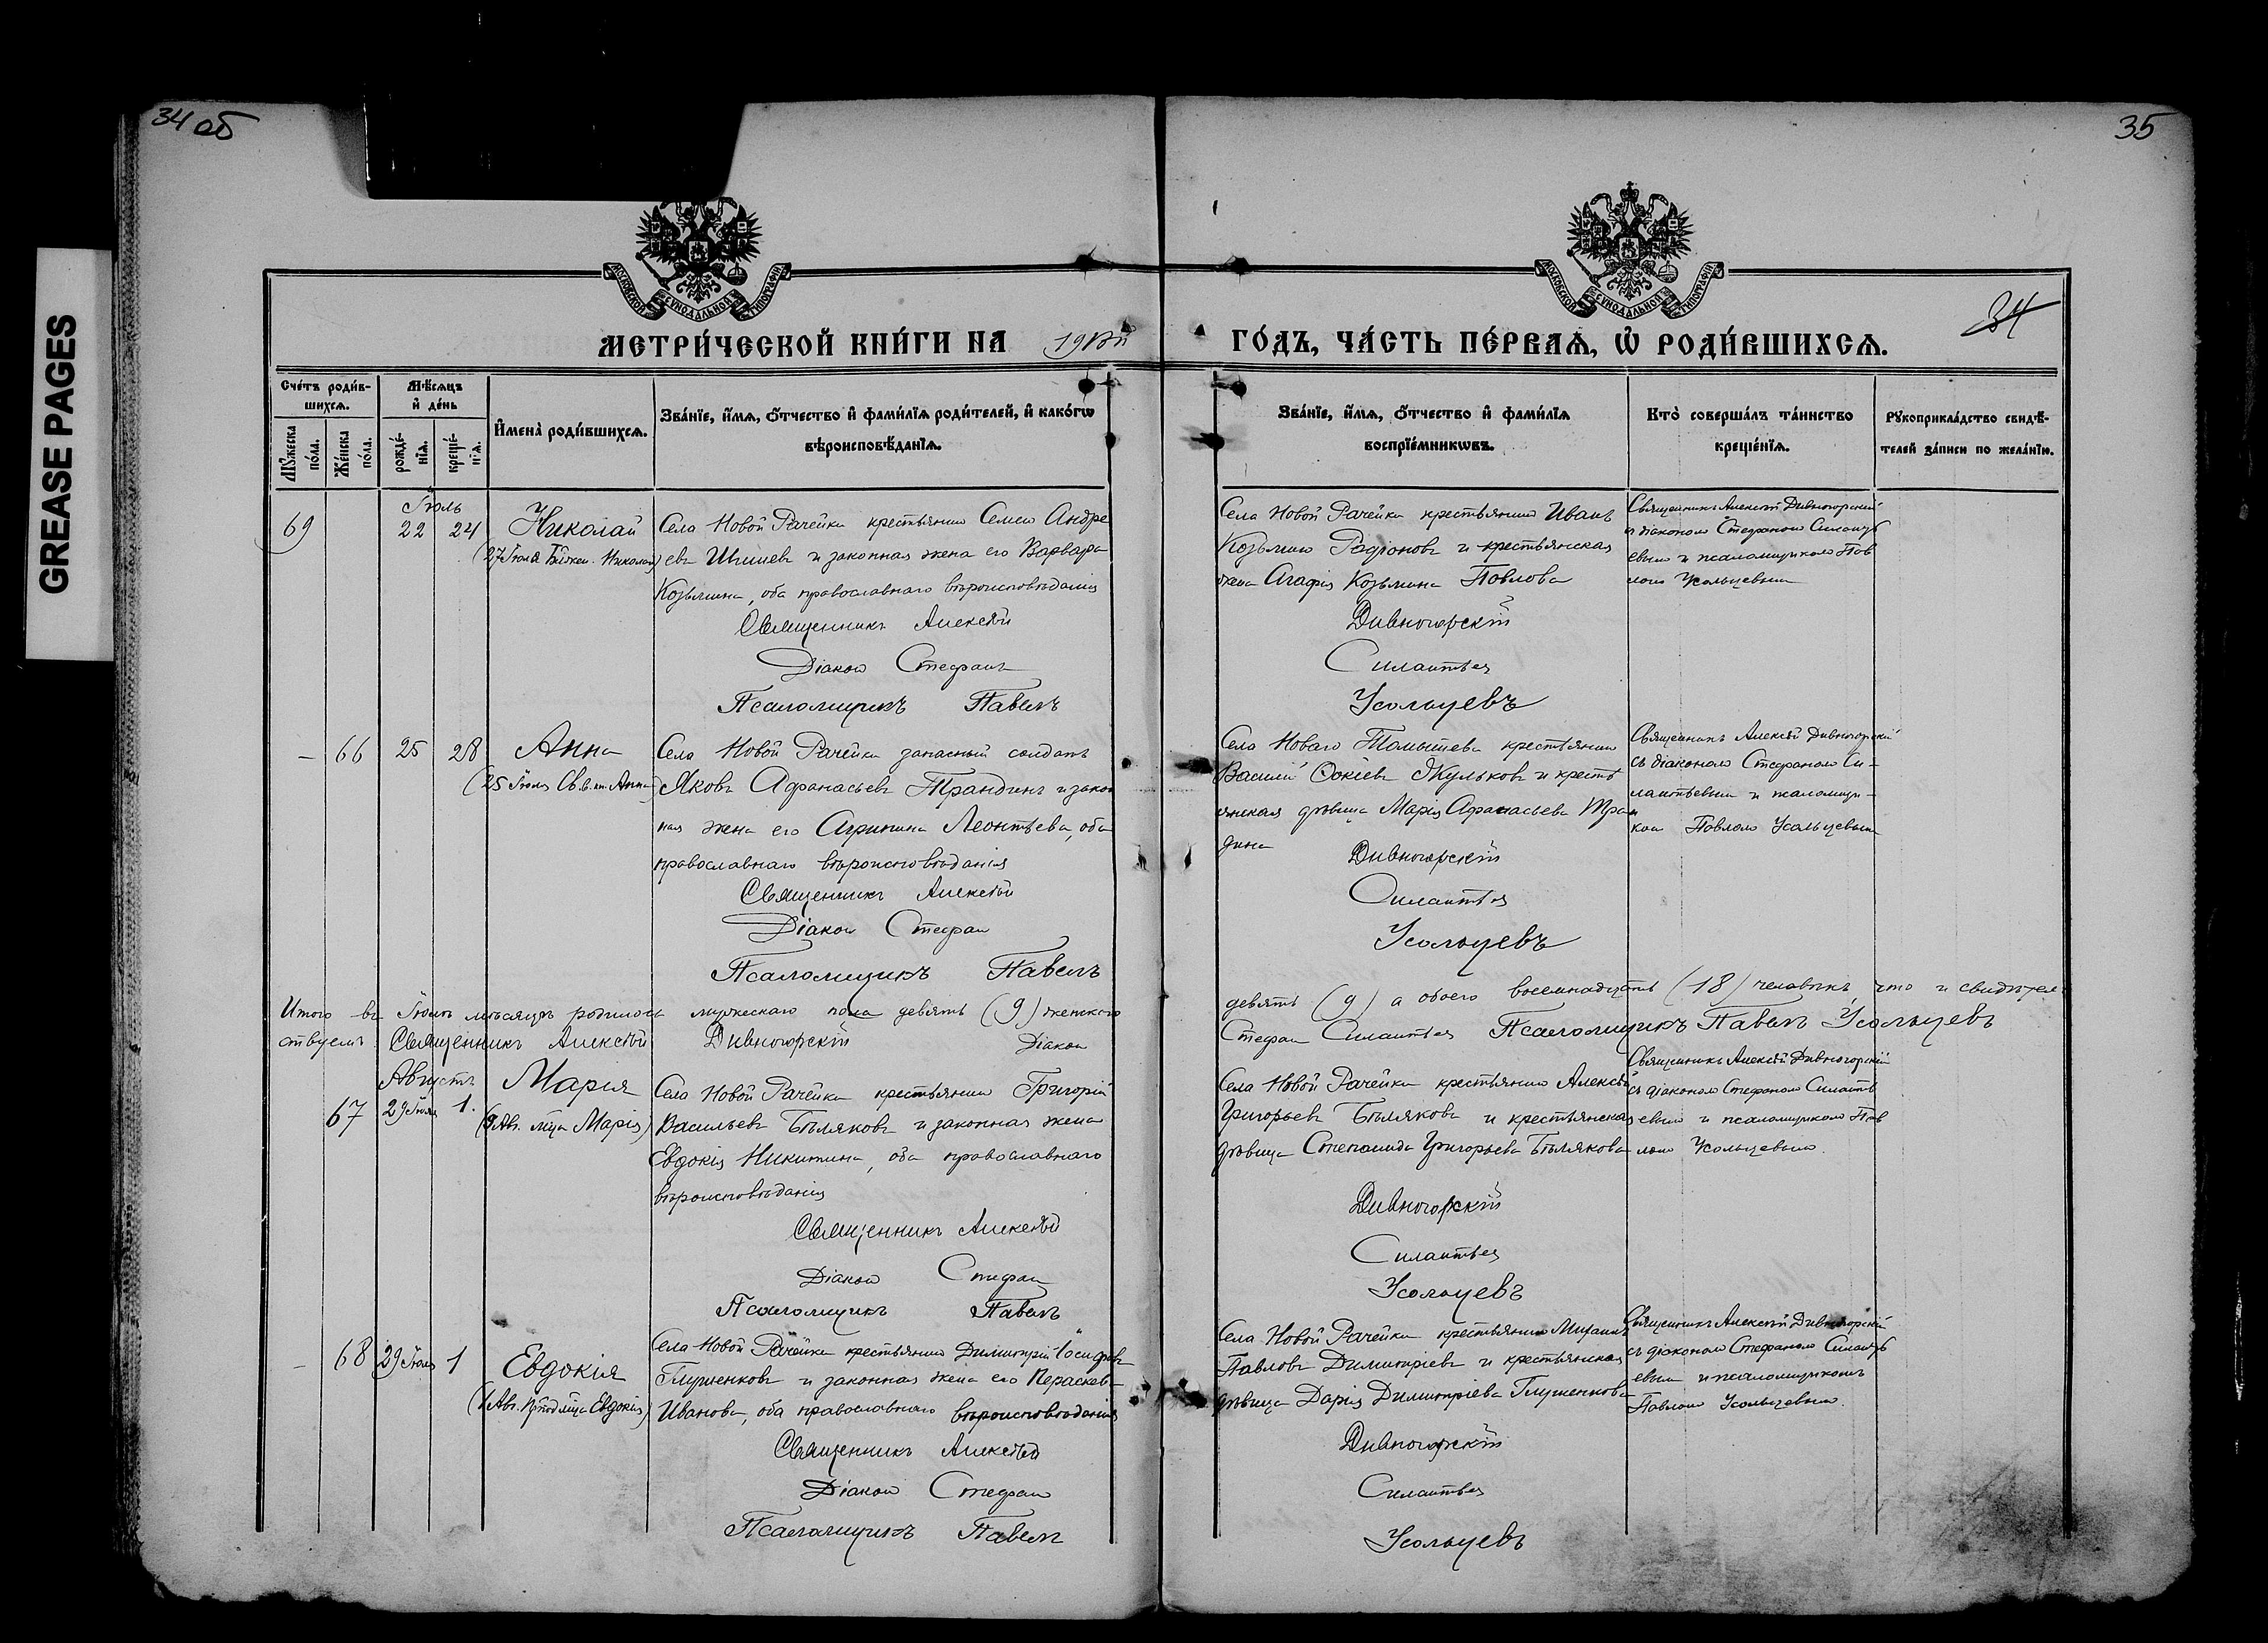 GREASE PAGES
34 об
35
МОСКОВСКОЙ СѴНОДАЛЬНОЙ ТИПОГРАФІИ
МОСКОВСКОЙ СѴНОДАЛЬНОЙ ТИПОГРАФІИ
34
МЕТРИ́ЧЕСКОЙ КНИ́ГИ НА
ГО́ДЪ, ЧА́СТЬ ПЕ́РВАѦ, Ѡ РОДИ́ВШИХСѦ.
Сче́тъ роди́в-
шихсѧ.
Мꙋ́жеска по́ла.
Же́нска по́ла.
Мѣ́сѧцъ
и҆ де́нь
рожде́-
нїѧ.
креще́-
нїѧ.
И҆мена̀ роди́вшихсѧ.
Зва́нїе, и҆́мѧ, ѻ҆́тчество и҆ фами́лїѧ роди́телей, и҆ како́гѡ
вѣроисповѣ́данїѧ.
Зва́нїе, и҆́мѧ, ѻ҆́тчество и҆ фами́лїѧ
воспрїе́мникѡвъ.
Кто̀ соверша́лъ та́инство
креще́нїѧ.
Рꙋкоприкла́дство свидѣ́-
телей за́писи по жела́нїю.
Іюль
69 22 24 Николай
(27 Іюля Николай)
Села Новой Рачейки крестьянин Семен Андре
ев и законная жена его Варвара
Козьмина, оба православнаго вѣроисповѣданія
Священникъ Алексѣй
Діакон Стефан
Псаломщикъ Павелъ
Села Новой Рачейки крестьянин Иванъ
Козьмин Родіоновъ и крестьянская
жена Агафія Козьмина Павлова
Дивногорскій
Силантьев
Усольцевъ
Священникъ Алексѣй Дивногорскій
с діаконом Стефаном Силанть
евым и псаломщиком Пав
лом Усольцевым
– 66 25 28 Анна
(25 Іюля Анна)
Села Новой Рачейки запасный солдатъ
Яковъ Афанасьевъ Трандинъ и закон
ная жена его Агрипина Леонтьева, оба
православнаго вѣроисповѣданія
Священникъ Алексѣй
Діакон Стефан
Псаломщикъ Павелъ
Села Новаго Томышева крестьянин
Василій Фокіевъ Жульковъ и кресть
янская дѣвица Марія Афанасьева Тран
дина
Дивногорскій
Силантьев
Усольцевъ
Священникъ Алексѣй Дивногорскій
съ діаконом Стефаном Си-
лантьевым и псаломщи-
ком Павлом Усольцевым
Итого въ Іюлѣ мѣсяцѣ родилось мужескаго пола девять (9) женскаго
девять (9) а обоего восемнадцать (18) человѣкъ, что и свидѣтель
ствуемъ Священникъ Алексѣй Дивногорскій Діакон
Стефан Силантьев Псаломщикъ Павелъ Усольцевъ
Августъ
67 29 Іюля 1. Марія
(9 Авг. мцы Марія)
Села Новой Рачейки крестьянин Григорій
Васильевъ Бѣляковъ и законная жена
Евдокія Никитина, оба православнаго
вѣроисповѣданія
Священникъ Алексѣй
Діакон Стефан
Псаломщикъ Павелъ
Села Новой Рачейки крестьянин Алексѣй
Григорьевъ Бѣляковъ и крестьянская
дѣвица Степанида Григорьева Бѣлякова
Дивногорскій
Силантьев
Усольцевъ
Священникъ Алексѣй Дивногорскій
съ діаконом Стефаном Силанть
евым и псаломщиком Пав
лом Усольцевым.
– 68 29 Іюля 1 Евдокія
(1 Авг. Евдокія)
Села Новой Рачейки крестьянин Димитрій Іосифовъ
Глушенковъ и законная жена его Пераскева
Иванова, оба православнаго вѣроисповѣданія
Священникъ Алексѣй
Діакон Стефан
Псаломщикъ Павелъ
Села Новой Рачейки крестьянин Михаилъ
Павловъ Димитріевъ и крестьянская
дѣвица Дарія Димитріева Глушенкова
Дивногорскій
Силантьев
Усольцевъ
Священникъ Алексѣй Дивногорскій
съ діаконом Стефаном Силанть
евым и псаломщикомъ
Павлом Усольцевым.